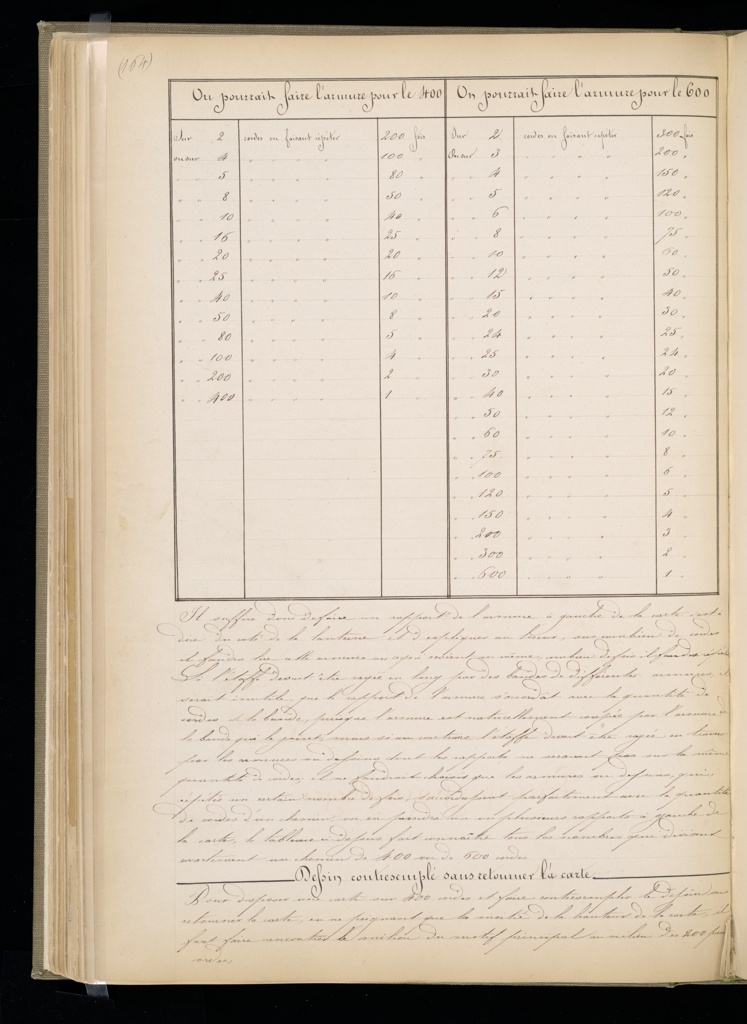 (164)
On pourrait faire l'armure pour le 400
Sur 2 cordes en faisant répéter 200 fois
ou sur 4 " " " " 100 "
" " 5 " " " " 80 "
" " 8 " " " " 50 "
" " 10 " " " " 40 "
" " 16 " " " " 25 "
" " 20 " " " " 20 "
" " 25 " " " " 16 "
" " 40 " " " " 10 "
" " 50 " " " " 8 "
" " 80 " " " " 5 "
" " 100 " " " " 4 "
" " 200 " " " " 2 "
" " 400 " " " " 1 "
On pourrait faire l'armure pour le 600
Sur 2 cordes en faisant répéter 300 fois
Ou sur 3 " " " " 200 "
" " 4 " " " " 150 "
" " 5 " " " " 120 "
" " 6 " " " " 100 "
" " 8 " " " " 75 "
" " 10 " " " " 60 "
" " 12 " " " " 50 "
" " 15 " " " " 40 "
" " 20 " " " " 30 "
" " 24 " " " " 25 "
" " 25 " " " " 24 "
" " 30 " " " " 20 "
" " 40 " " " " 15 "
" " 50 " " " " 12 "
" " 60 " " " " 10 "
" " 75 " " " " 8 "
" " 100 " " " " 6 "
" " 120 " " " " 5 "
" " 150 " " " " 4 "
" " 200 " " " " 3 "
" " 300 " " " " 2 "
" " 600 " " " " 1 "
Il suffira donc de faire un rapport de l'armure à gauche de la carte c'est à
dire du coté de la lanterne et d'expliquer au liseur, sur combien de cordes
il faudra lire cette armure
Si l'étoffe devait être rayée en long par des bandes de différentes armures, il
serait inutile que le rapport de l'armure s'accordât avec la quantité de
cordes de la bande, puisque l'armure est naturellement coupée par l'armure de
la bande qui la joint, mais si au contraire l'étoffe devait être rayée en travers
par les armures ou dessins dont les rapports ne seraient pas sur la même
quantité de cordes, il ne faudrait choisir que les armures ou dessins, qui
répétés un certain nombre de fois, s'accordassent parfaitement avec la quantité
de cordes d'un chemin, ou en peindre un ou plusieurs rapports à gauche de
la carte, le tableau ci dessus fait connaître tous les nombres qui divisent
exactement un chemin de 400 ou de 600 cordes
Dessin contresemplé sans retourner la carte.
Pour disposer une carte sur 400 cordes et faire contresempler le dessin sans
retourner la carte, en ne peignant que la moitié de la hauteur de la carte, il
faut faire rencontrer le milieu du motif principal au milieu des 400
cordes,